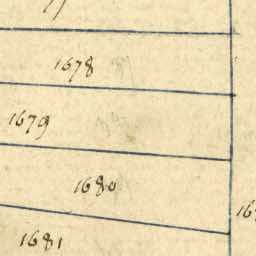 1678
1679
1680
1681